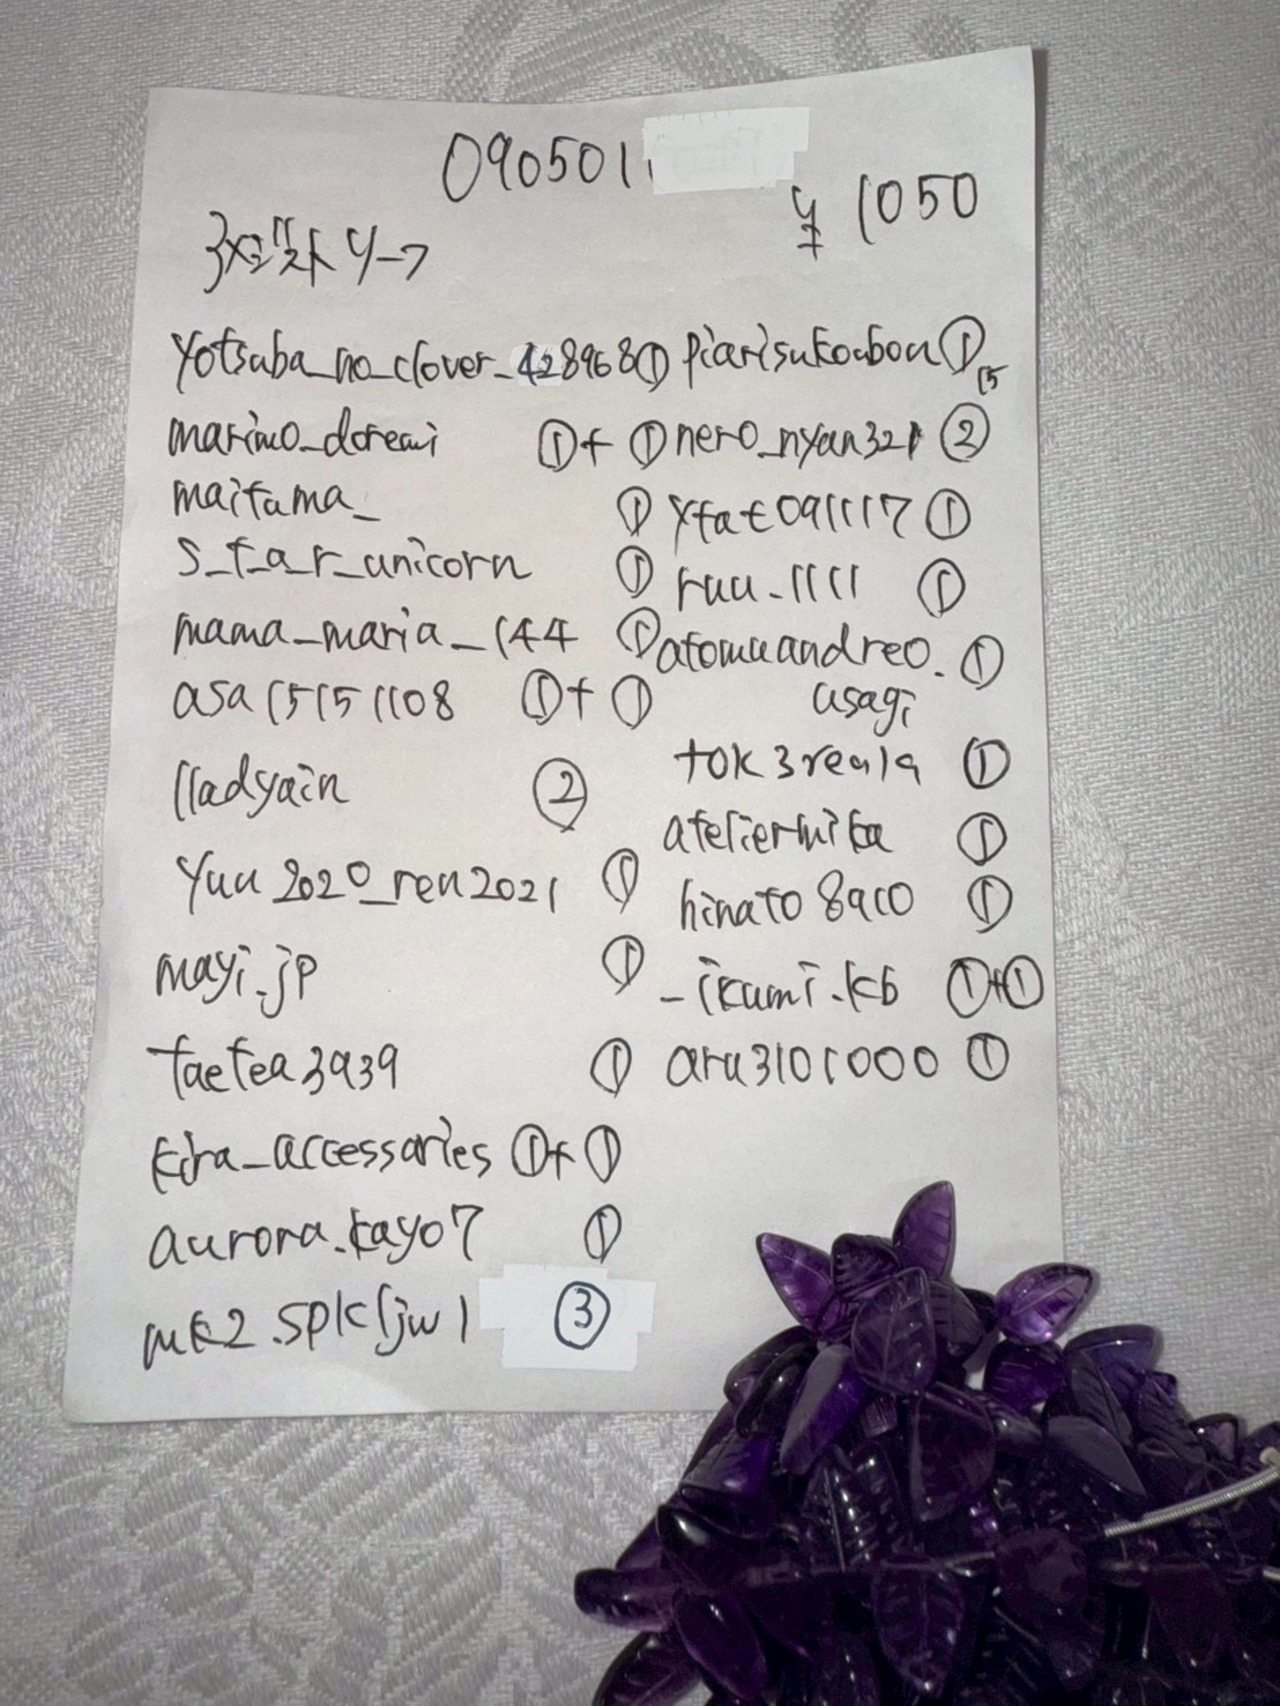 090501
¥1050
アメジストリーフ
yotsuba_no_clover_428968 ①
marimo_doremi ①+①
maitama_ ①
s_t_a_r_unicorn ①
mama_maria_144 ①
asa15151108 ①+①
lladyain ②
yuu2020_ren2021 ①
mayi.jp ①
taetea3939 ①
kira_accessories ①+①
aurora.kayo7 ①
mk2.spkljw1 ③
piarisukoubou ①
15
nero_nyan321 ②
ytat091117 ①
ruu_1111 ①
atomuandreo. ①
usagi
tok3rea19 ①
ateliermika ①
hinato8910 ①
_ikumi.kb ①+①
aru3101000 ①